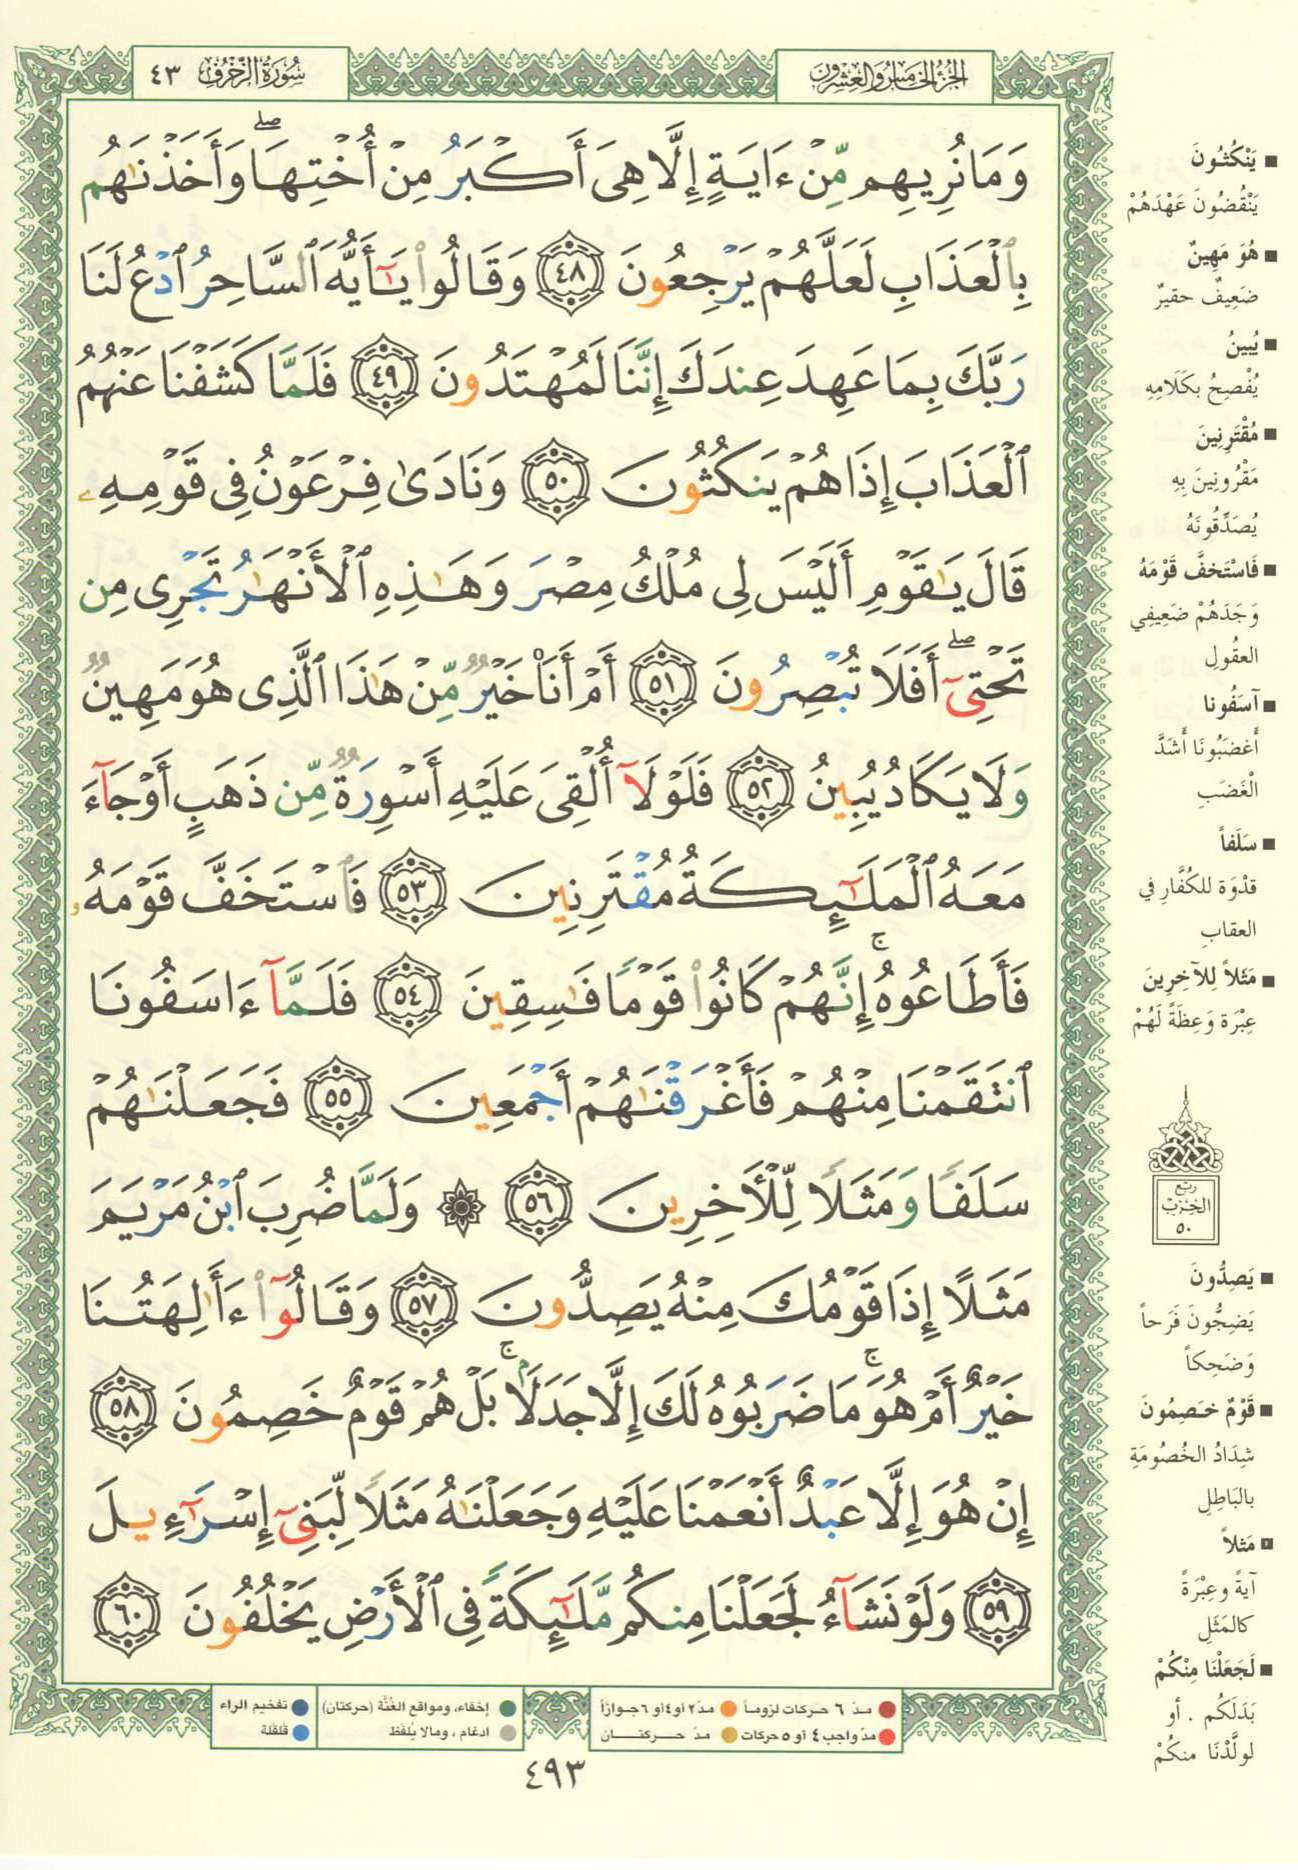 الجزء الخامس والعشرون
سُورَةُ الزّخرُف ٤٣
وَمَا نُرِيهِم مِّنْ ءَايَةٍ إِلَّا هِىَ أَكْبَرُ مِنْ أُخْتِهَا ۖ وَأَخَذْنَٰهُم
بِٱلْعَذَابِ لَعَلَّهُمْ يَرْجِعُونَ ٤٨ وَقَالُوا۟ يَٰٓأَيُّهَ ٱلسَّاحِرُ ٱدْعُ لَنَا
رَبَّكَ بِمَا عَهِدَ عِندَكَ إِنَّنَا لَمُهْتَدُونَ ٤٩ فَلَمَّا كَشَفْنَا عَنْهُمُ
ٱلْعَذَابَ إِذَا هُمْ يَنكُثُونَ ٥٠ وَنَادَىٰ فِرْعَوْنُ فِى قَوْمِهِۦ
قَالَ يَٰقَوْمِ أَلَيْسَ لِى مُلْكُ مِصْرَ وَهَٰذِهِ ٱلْأَنْهَٰرُ تَجْرِى مِن
تَحْتِىٓ ۖ أَفَلَا تُبْصِرُونَ ٥١ أَمْ أَنَا۠ خَيْرٌ مِّنْ هَٰذَا ٱلَّذِى هُوَ مَهِينٌ
وَلَا يَكَادُ يُبِينُ ٥٢ فَلَوْلَآ أُلْقِىَ عَلَيْهِ أَسْوِرَةٌ مِّن ذَهَبٍ أَوْ جَآءَ
مَعَهُ ٱلْمَلَٰٓئِكَةُ مُقْتَرِنِينَ ٥٣ فَٱسْتَخَفَّ قَوْمَهُۥ
فَأَطَاعُوهُ ۚ إِنَّهُمْ كَانُوا۟ قَوْمًا فَٰسِقِينَ ٥٤ فَلَمَّآ ءَاسَفُونَا
ٱنتَقَمْنَا مِنْهُمْ فَأَغْرَقْنَٰهُمْ أَجْمَعِينَ ٥٥ فَجَعَلْنَٰهُمْ
سَلَفًا وَمَثَلًا لِّلْءَاخِرِينَ ٥٦ ۞ وَلَمَّا ضُرِبَ ٱبْنُ مَرْيَمَ
مَثَلًا إِذَا قَوْمُكَ مِنْهُ يَصِدُّونَ ٥٧ وَقَالُوٓا۟ ءَأَٰلِهَتُنَا
خَيْرٌ أَمْ هُوَ ۚ مَا ضَرَبُوهُ لَكَ إِلَّا جَدَلًۢا ۚ بَلْ هُمْ قَوْمٌ خَصِمُونَ ٥٨
إِنْ هُوَ إِلَّا عَبْدٌ أَنْعَمْنَا عَلَيْهِ وَجَعَلْنَٰهُ مَثَلًا لِّبَنِىٓ إِسْرَٰٓءِيلَ
٥٩ وَلَوْ نَشَآءُ لَجَعَلْنَا مِنكُم مَّلَٰٓئِكَةً فِى ٱلْأَرْضِ يَخْلُفُونَ ٦٠
■ يَنْكُثُونَ
يَنْقُضُونَ عَهْدَهُمْ
■ هُوَ مَهِينٌ
ضَعِيفٌ حقيرٌ
■ يُبينُ
يُفْصِحُ بكَلَامِهِ
■ مُقْتَرِنِينَ
مَقْرُونِينَ بِهِ
يُصَدِّقُونَهُ
■ فَاسْتَخفَّ قَوْمَهُ
وَجَدَهُمْ ضَعِيفِي
العقُولِ
■ آسَفُونا
أَغضَبُونَا أَشَدَّ
الْغَضَبِ
■ سَلَفاً
قدْوَة للكُفَّارِ في
العقابِ
■ مَثَلاً لِلآخِرِينَ
عِبْرَة وَعِظَةً لَهُمْ
ربع
الحِزبْ
٥٠
■ يَصِدُّونَ
يَضِجُّونَ فَرَحاً
وَضَحِكاً
■ قَوْمٌ خَصِمُونَ
شِدَادُ الخُصُومَةِ
بالبَاطِلِ
■ مَثلاً
آيَةً وعِبْرَةً
كالمَثَلِ
■ لَجَعَلْنَا مِنْكُمْ
بَدَلَكُم . أو
لولَّدْنَا منكُمْ
● مدّ ٦ حركات لزوماً ● مدّ ٢ أو ٤ أو ٦ جوازاً
● مدّ واجب ٤ أو ٥ حركات ● مدّ حركتان
● إخفاء، ومواقع الغُنَّة (حركتان)
● ادغام ، ومالا يُلفَظ
● تفخيم الراء
● قلقلة
٤٩٣